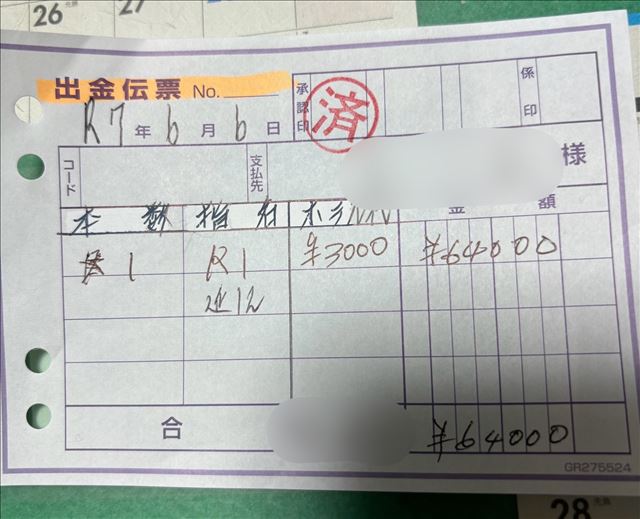 26 27
出金伝票 No.
承認印 済 係印
R7年6月6日
コード 支払先 様
本数 指名 金額
1 R1 ¥3000 ¥64000
合 ¥64000
GR275524
28